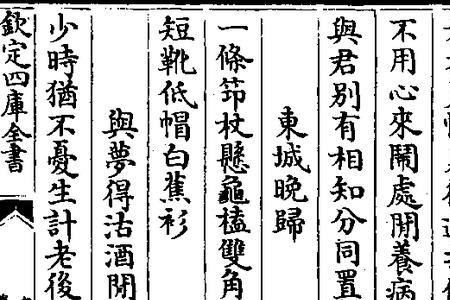 不用心來鬧處閒養病
與君別有相知分同置
東城晚歸
一條筇杖懸龜榼雙角
短靴低帽白蕉衫
與夢得沽酒閒
少時猶不憂生計老後
欽定四庫全書